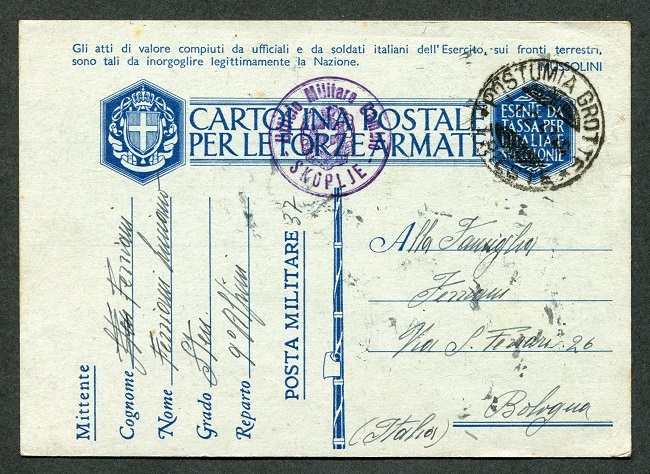 Gli atti di valore compiuti da ufficiali e da soldati italiani dell'Esercito, sui fronti terrestri,
sono tali da inorgoglire legittimamente la Nazione.
MUSSOLINI
CARTOLINA POSTALE
PER LE FORZE ARMATE
ESENTE DA
TASSA PER
ITALIA E
COLONIE
Militare
SKOPLJE
POSTUMIA GROTTE
TRIESTE
Mittente
Cognome Ferriani
Nome Ferriani Luciano
Grado STen
Reparto 9° Alpini
POSTA MILITARE 37
Alla Famiglia
Ferriani
Via S. Ferrari 26
Bologna
(Italia)